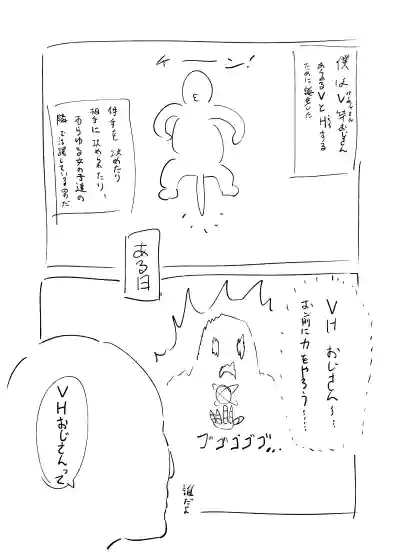 チーン!
僕はV竿おじさん
あらゆるVとHする
ために誕生した
相手を攻めたり
相手に攻められたり、
あらゆる女の子達の
隣で活躍している男だ
ある日
VHおじさん〜〜
お前に力をやろう〜……
ゴゴゴゴゴ…
VHおじさんって
誰だよ